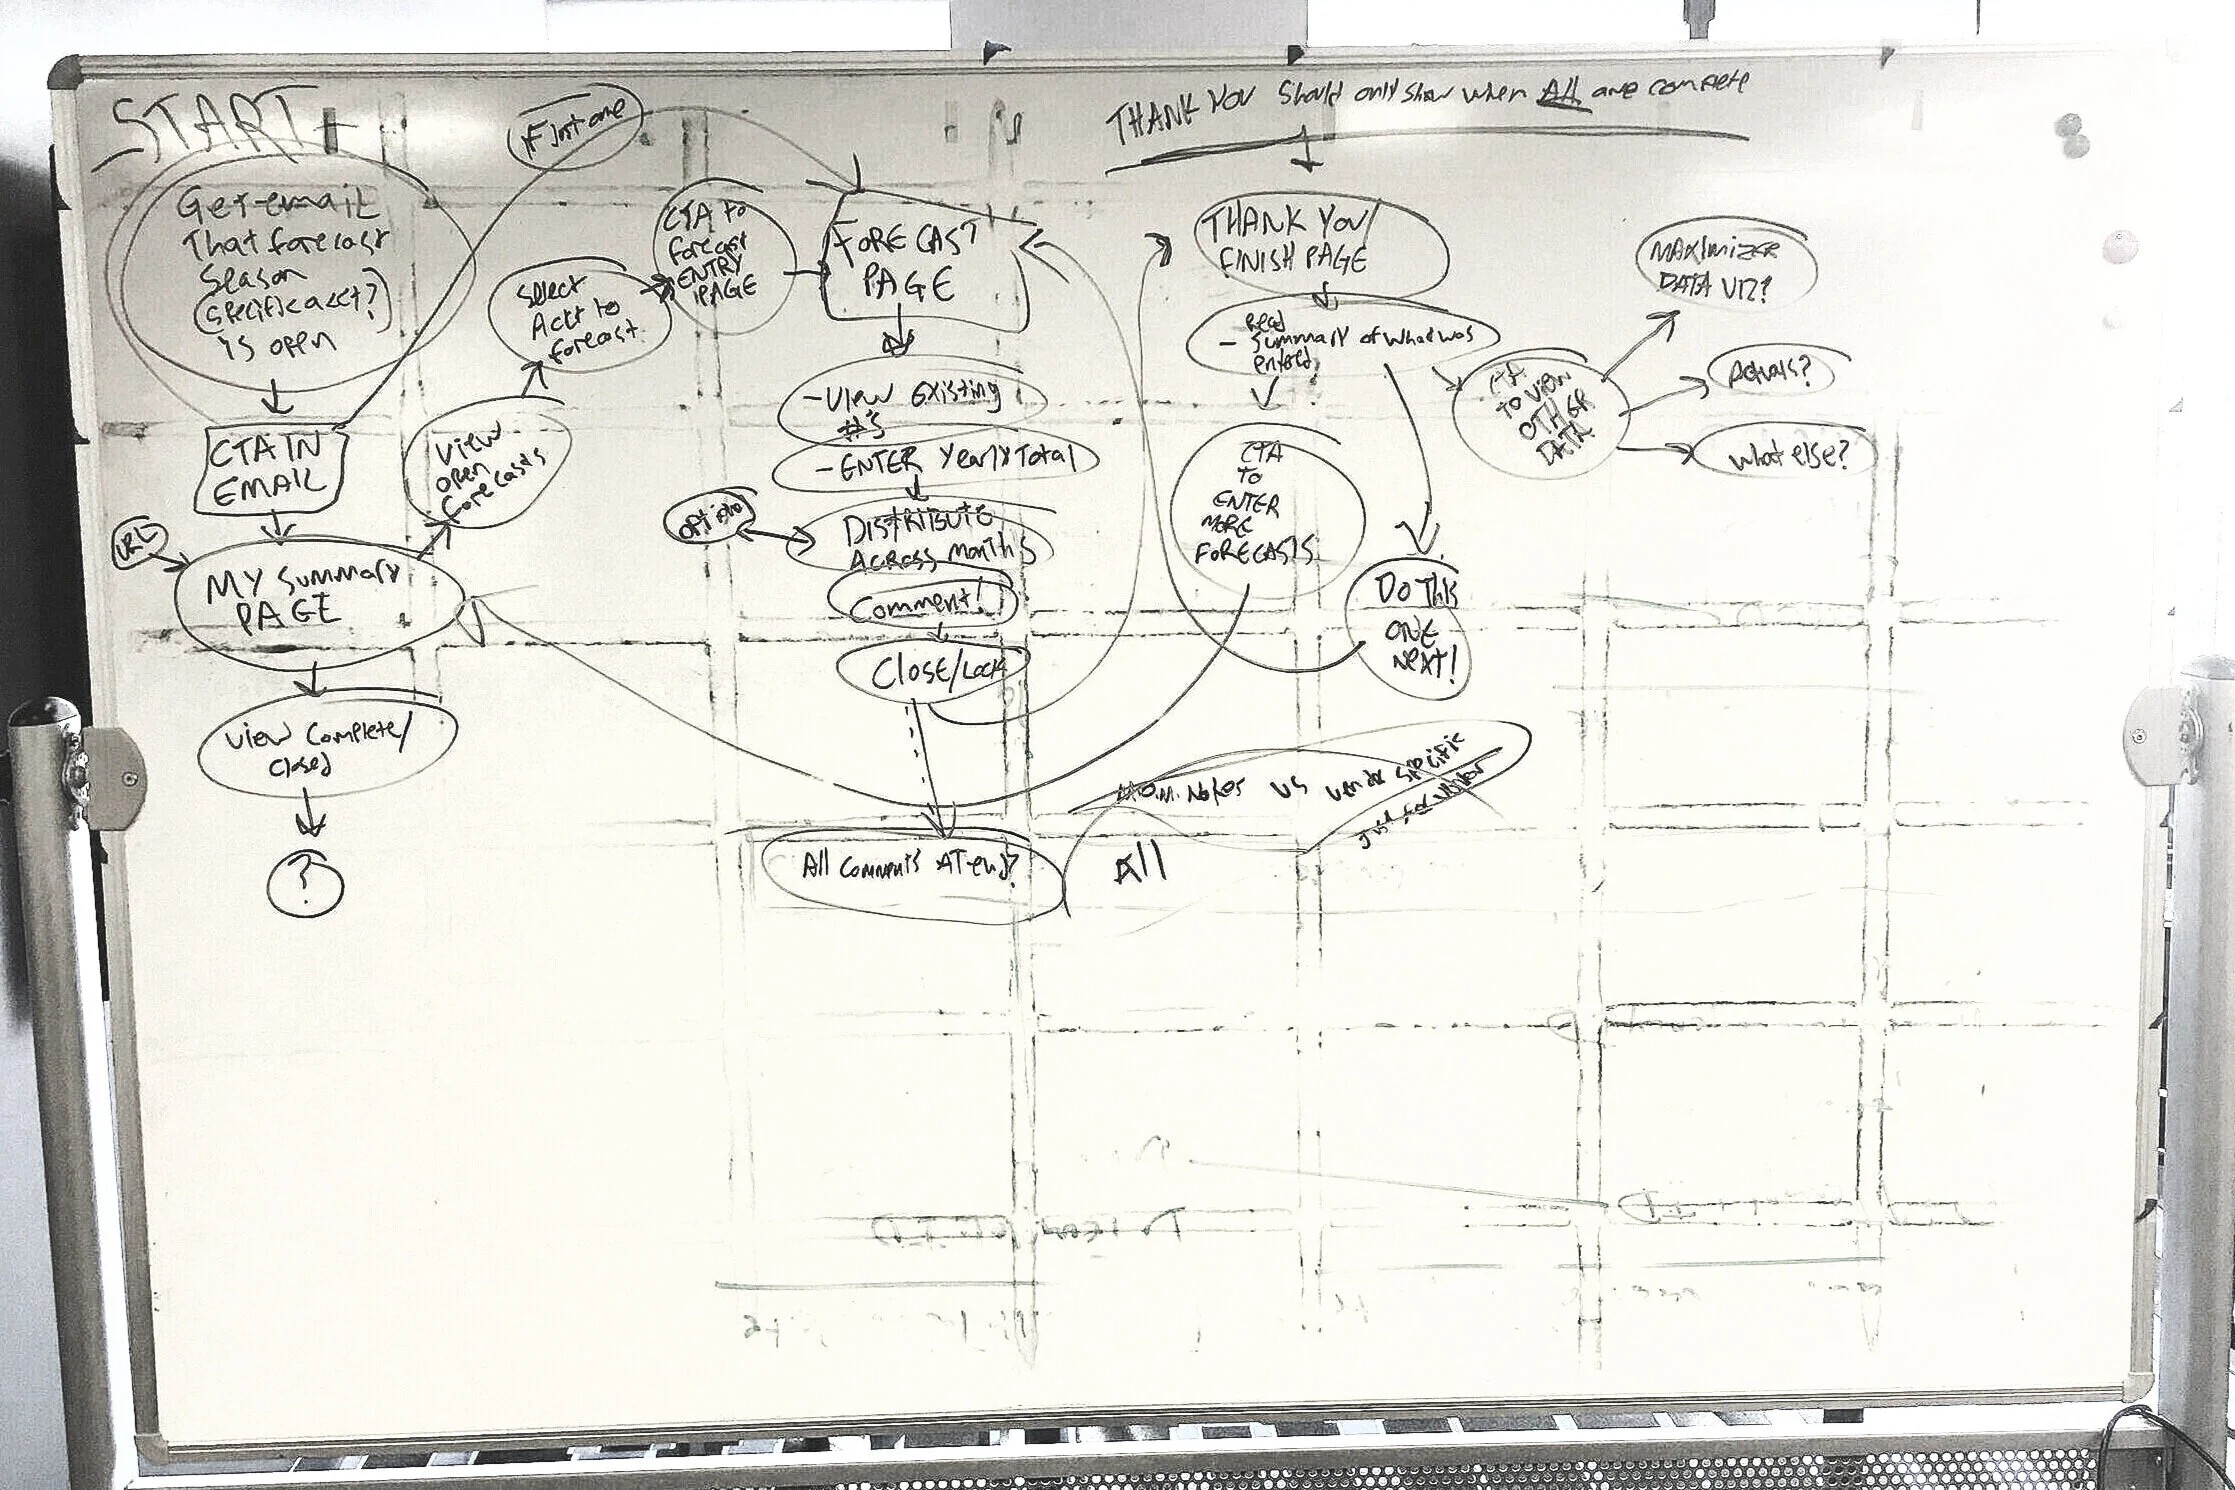 START
Get email
That forecast
Season
(specific acct?)
is open
CTA IN
EMAIL
URL
MY Summary
PAGE
View Complete/
Closed
?
View
open
forecasts
Select
Acct to
forecast
First one
CTA to
forecast
ENTRY
PAGE
FORECAST
PAGE
- View Existing
#'s
- ENTER Yearly Total
option
DISTRIBUTE
ACROSS Months
Comment!
Close/Lock
All comments AT end?
All
M.O.M. Notes vs vendor specific
THANK YOU Should only show when All are complete
THANK YOU/
FINISH PAGE
Read
- Summary of what was
entered
CTA
TO
ENTER
MORE
FORECASTS
DO This
ONE
NEXT!
CTA
TO VIEW
OTHER
DATA
MAXIMIZER
DATA VIZ?
Actuals?
What else?